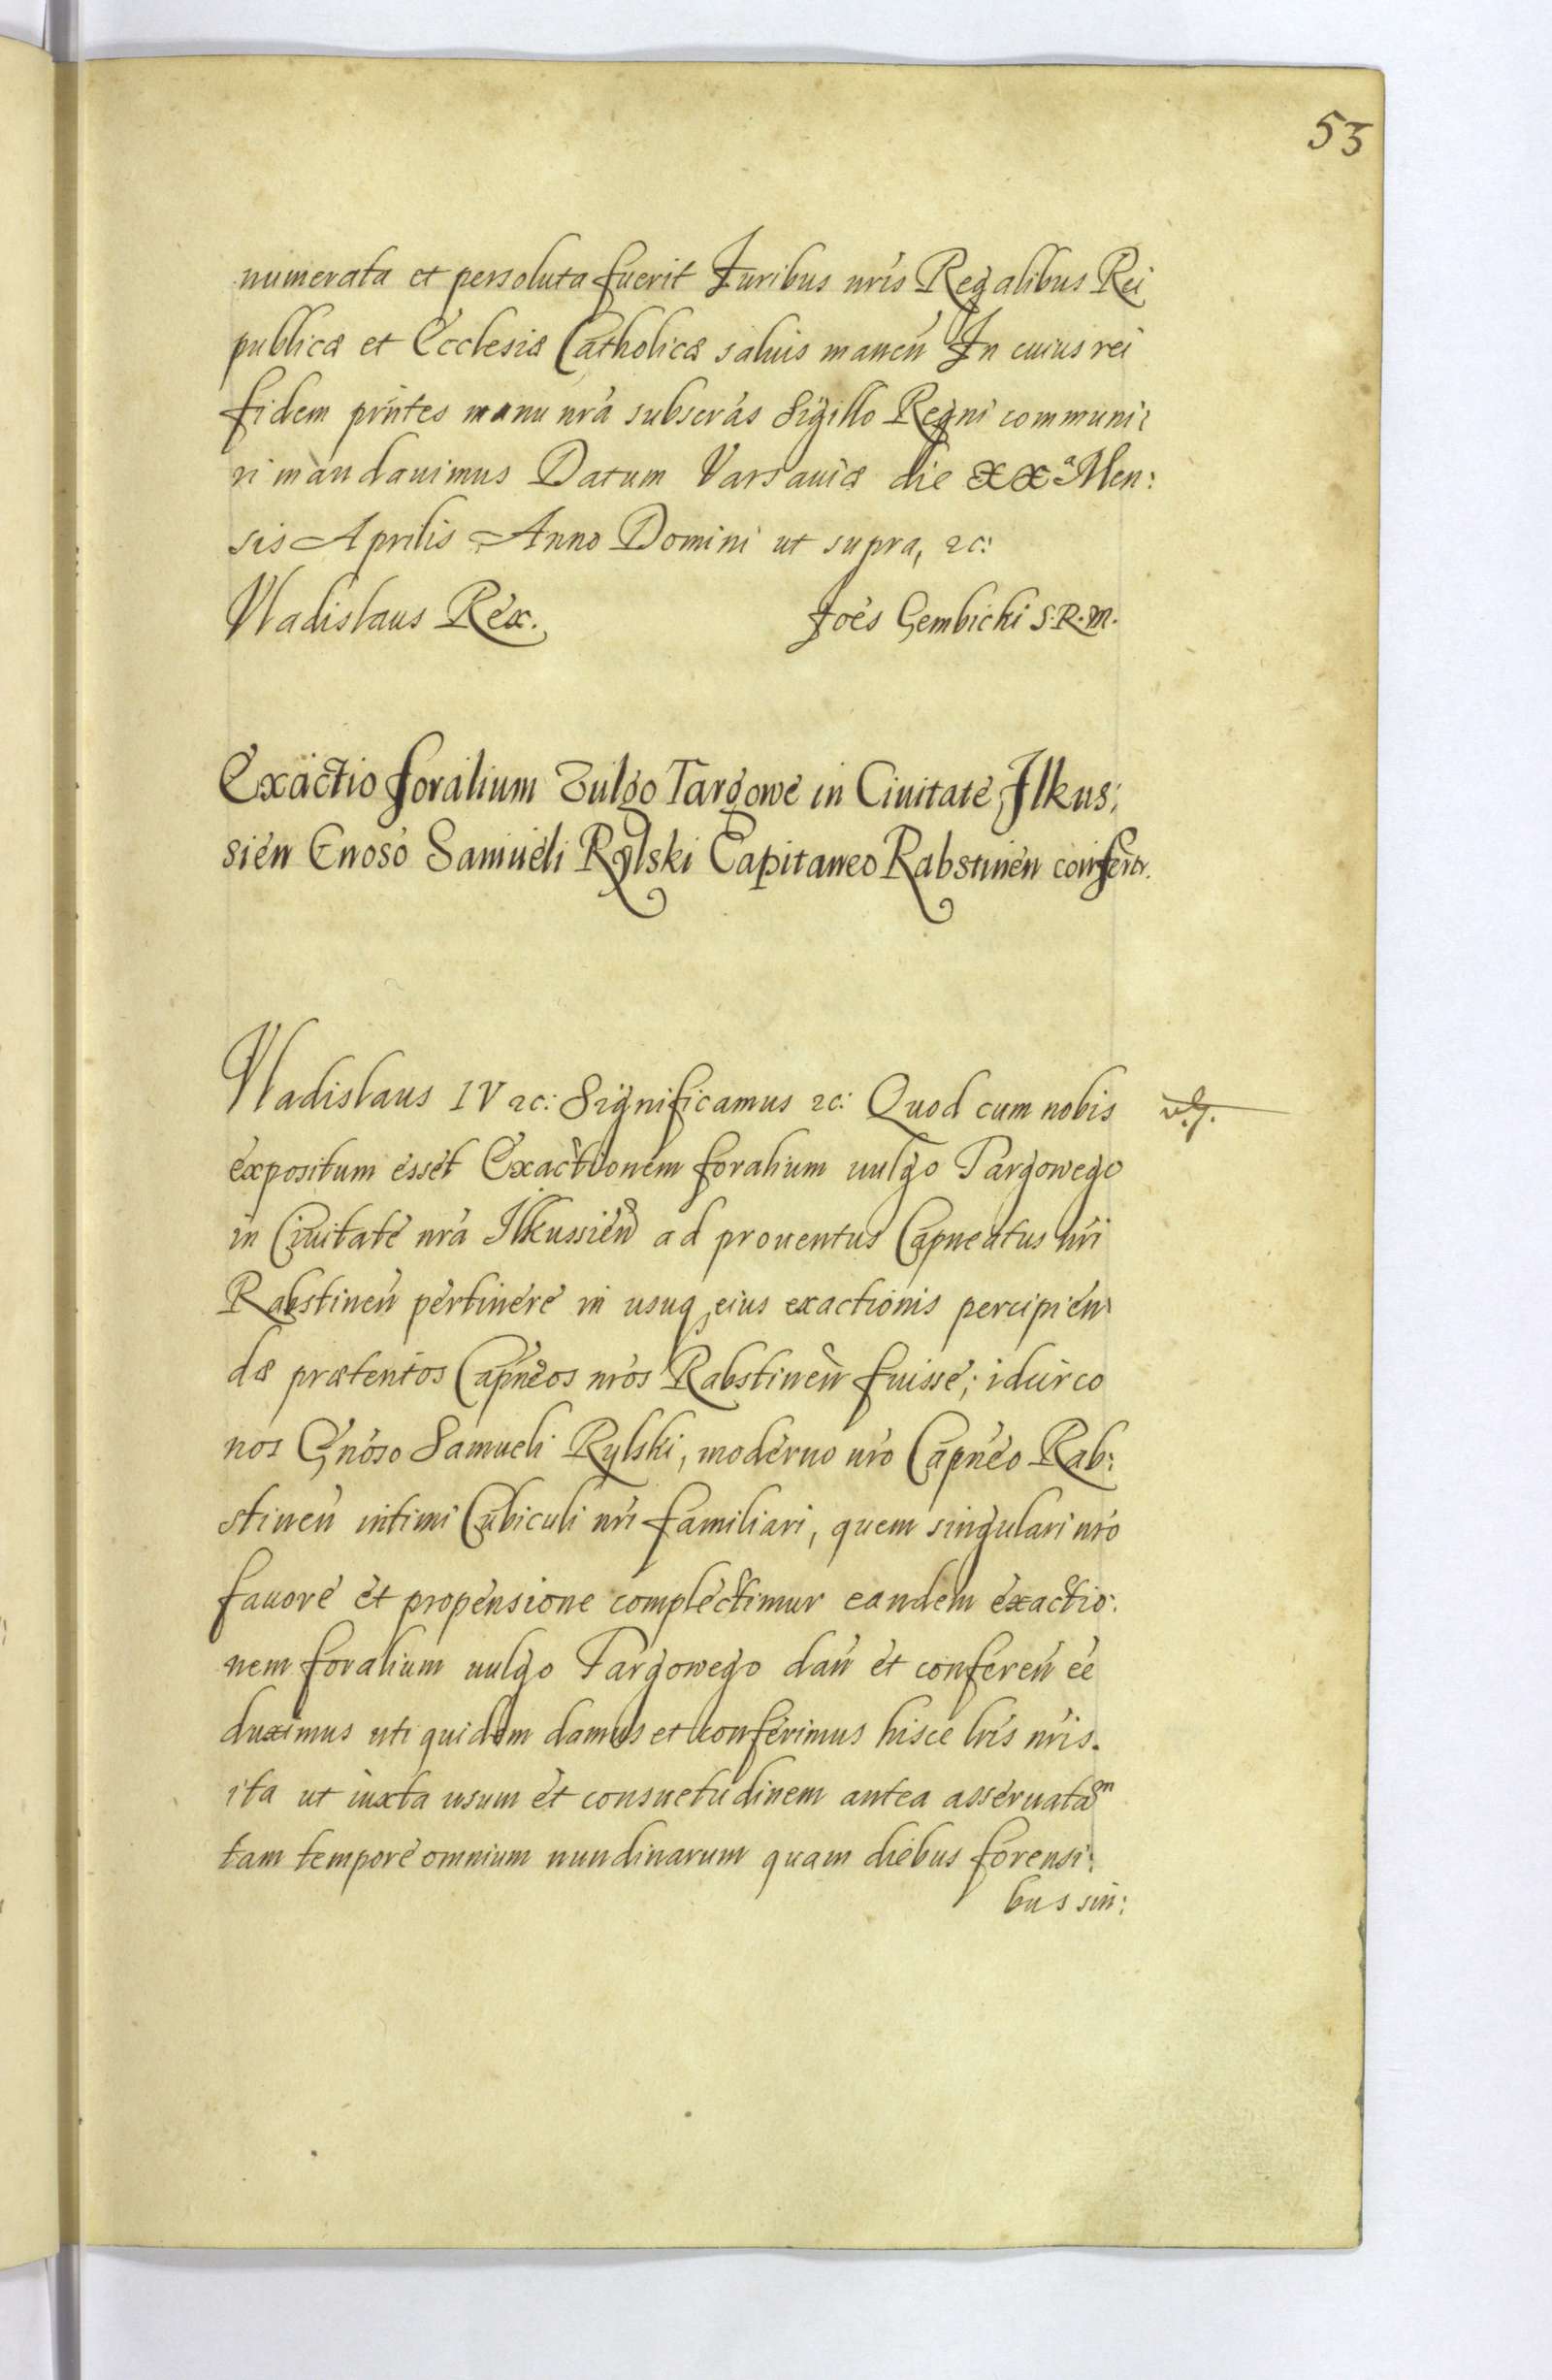 53
numerata et persoluta fuerit Iuribus nris Regalibus Rei
publicæ et Ecclesiæ Catholicæ saluis manen̄ In cuius rei
fidem pr̄ntes manu nr̄a subscr̄as Sigillo Regni communi:
ri mandauimus Datum Varsauiæ die XXª Men:
sis Aprilis Anno Domini ut supra, ꝛc:
Vladislaus Rex. Joēs Gembicki S.R.M.
Exactio foralium Vulgo Targowe in Ciuitate Ilkus:
sien̄ Gnoso Samueli Rylski Capitaneo Rabstinen̄ confertr.
Vladislaus IV ꝛc: Significamus ꝛc: Quod cum nobis
expositum esset Exactionem foralium uulgo Targowego
in Ciuitate nr̄a Ilkussien̄ ad prouentus Capneatus nr̄i
Rabstinen̄ pertinere in usuq eius exactionis percipien
dæ prætentos Capn̄eos nr̄os Rabstinen̄ fuisse; idcirco
nos Gn̄oso Samueli Rylski, moderno nr̄o Capn̄eo Rab:
stinen̄ intimi Cubiculi nr̄i familiari, quem singulari nr̄o
fauore et propensione complectimur eandem exactio:
nem foralium uulgo Targowego dan̄ et conferen̄ ēe
duximus uti quidem damus et conferimus hisce lr̄is nr̄is.
ita ut iuxta usum et consuetudinem antea asseruatam
tam tempore omnium nundinarum quam diebus forensi:
bus sin: